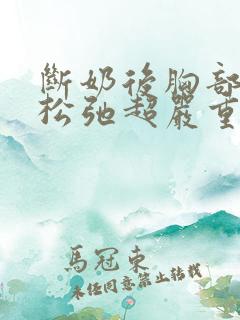 斷奶後胸部
松弛超嚴重
馬冠東
未任同意禁止轉載